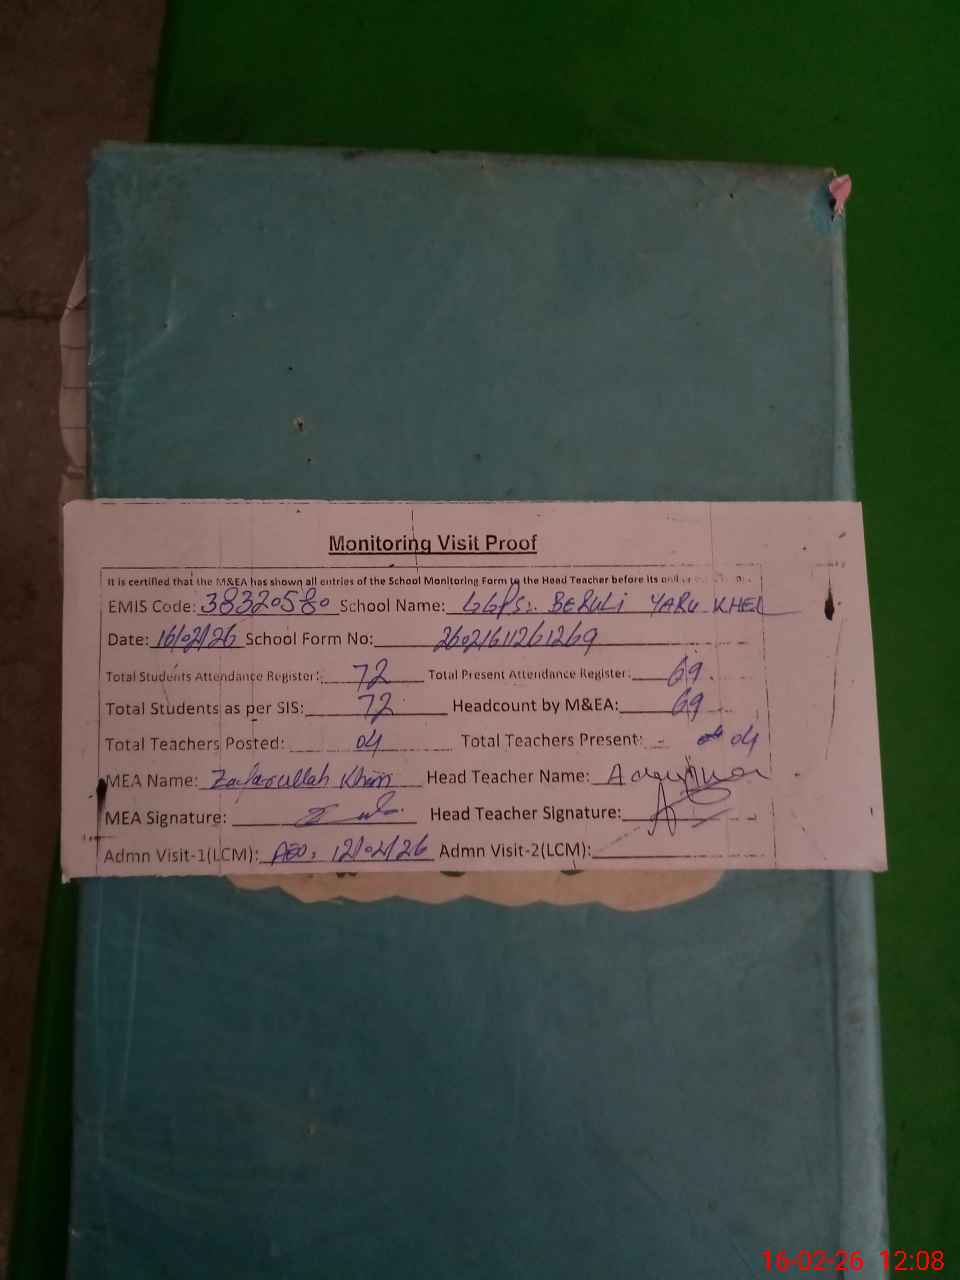 Monitoring Visit Proof
It is certified that the M&EA has shown all entries of the School Monitoring Form to the Head Teacher before its
EMIS Code: 38320580 School Name: GGPS: BERULI YARU KHEL
Date: 16/02/26 School Form No: 26021611261269
Total Students Attendance Register: 72 Total Present Attendance Register: 69
Total Students as per SIS: 72 Headcount by M&EA: 69
Total Teachers Posted: 04 Total Teachers Present: 04
MEA Name: Zafarullah Khan Head Teacher Name:
MEA Signature: Head Teacher Signature:
Admn Visit-1(LCM): AEO, 12/02/26 Admn Visit-2(LCM):
16-02-26 12:08